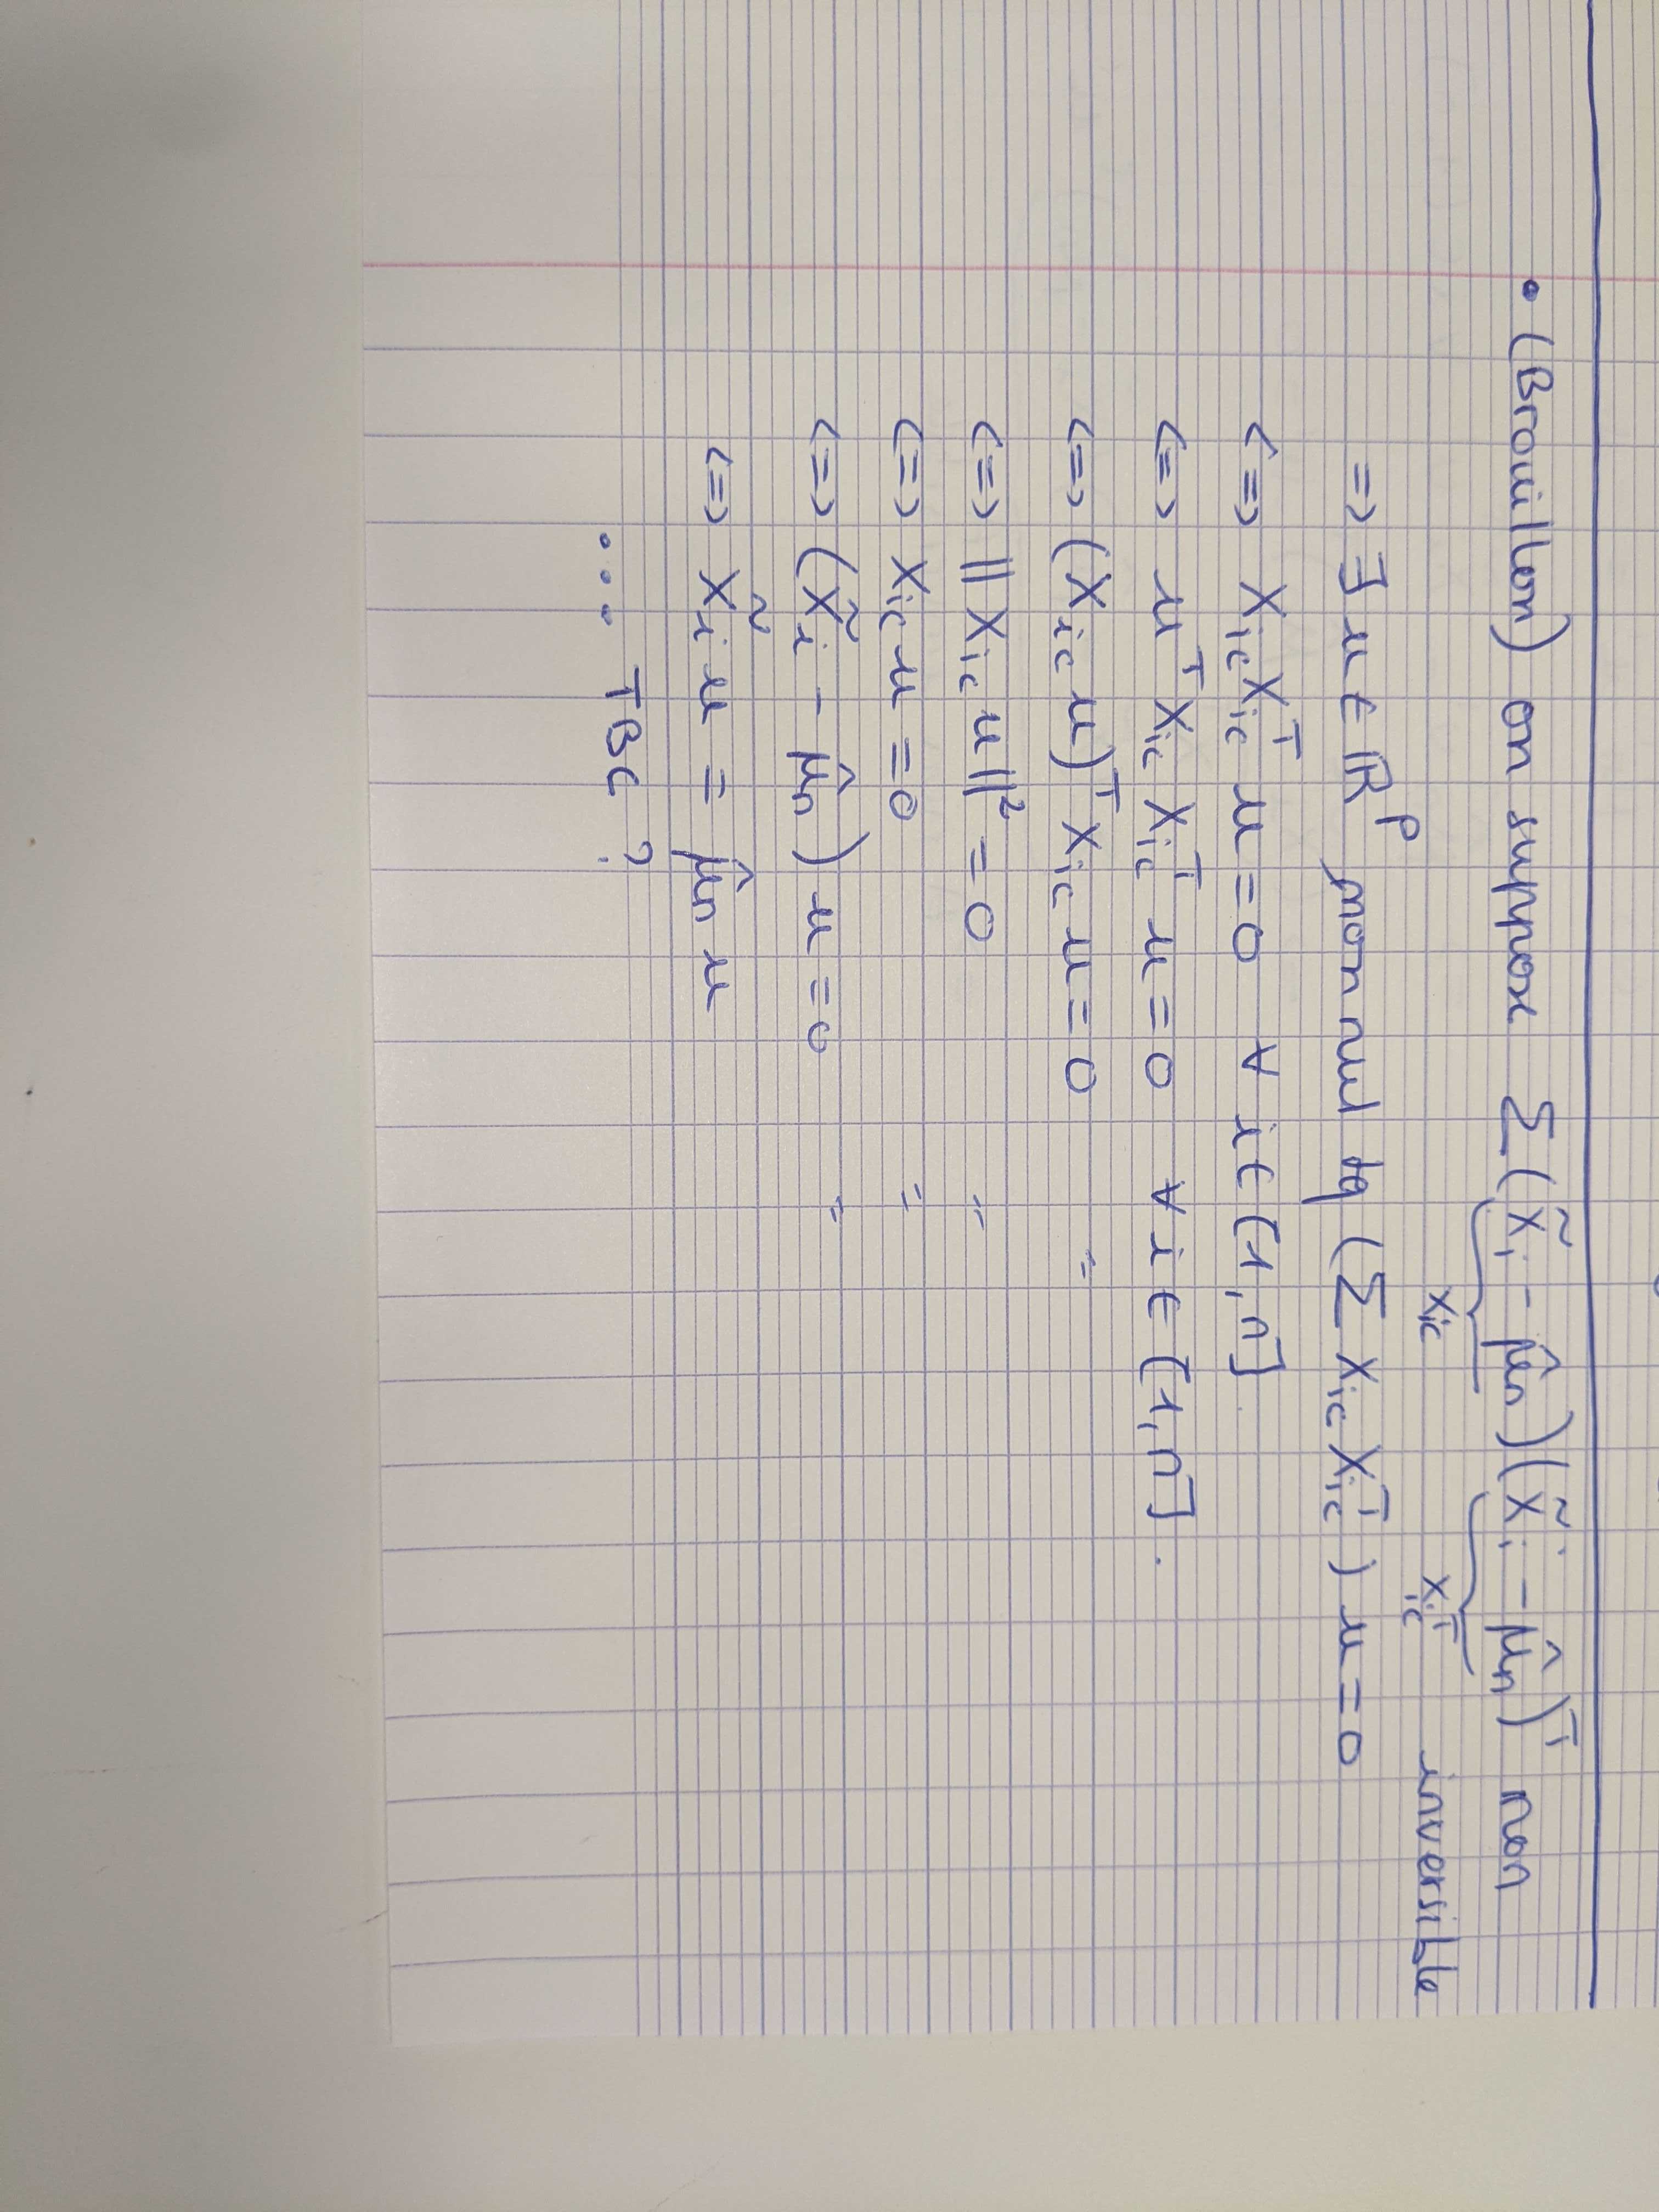 • (Brouillon) on suppose Σ(X̃ᵢ - μ̂ₙ)(X̃ᵢ - μ̂ₙ)ᵀ non
Xic Xicᵀ inversible
=> ∃ u ∈ ℝᵖ non nul tq (Σ Xic Xicᵀ) u = 0
<=> Xic Xicᵀ u = 0 ∀ i ∈ [1, n]
<=> uᵀ Xic Xicᵀ u = 0 ∀ i ∈ [1, n].
<=> (Xic u)ᵀ Xic u = 0 "
<=> || Xic u ||² = 0 "
<=> Xic u = 0 "
<=> (X̃ᵢ - μ̂ₙ) u = 0 "
<=> X̃ᵢ u = μ̂ₙ u
... TBC ?